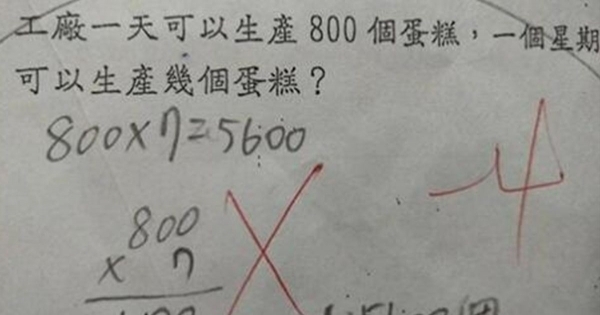 工廠一天可以生產800個蛋糕，一個星期
可以生產幾個蛋糕？
800×7=5600
-4
800
× 7